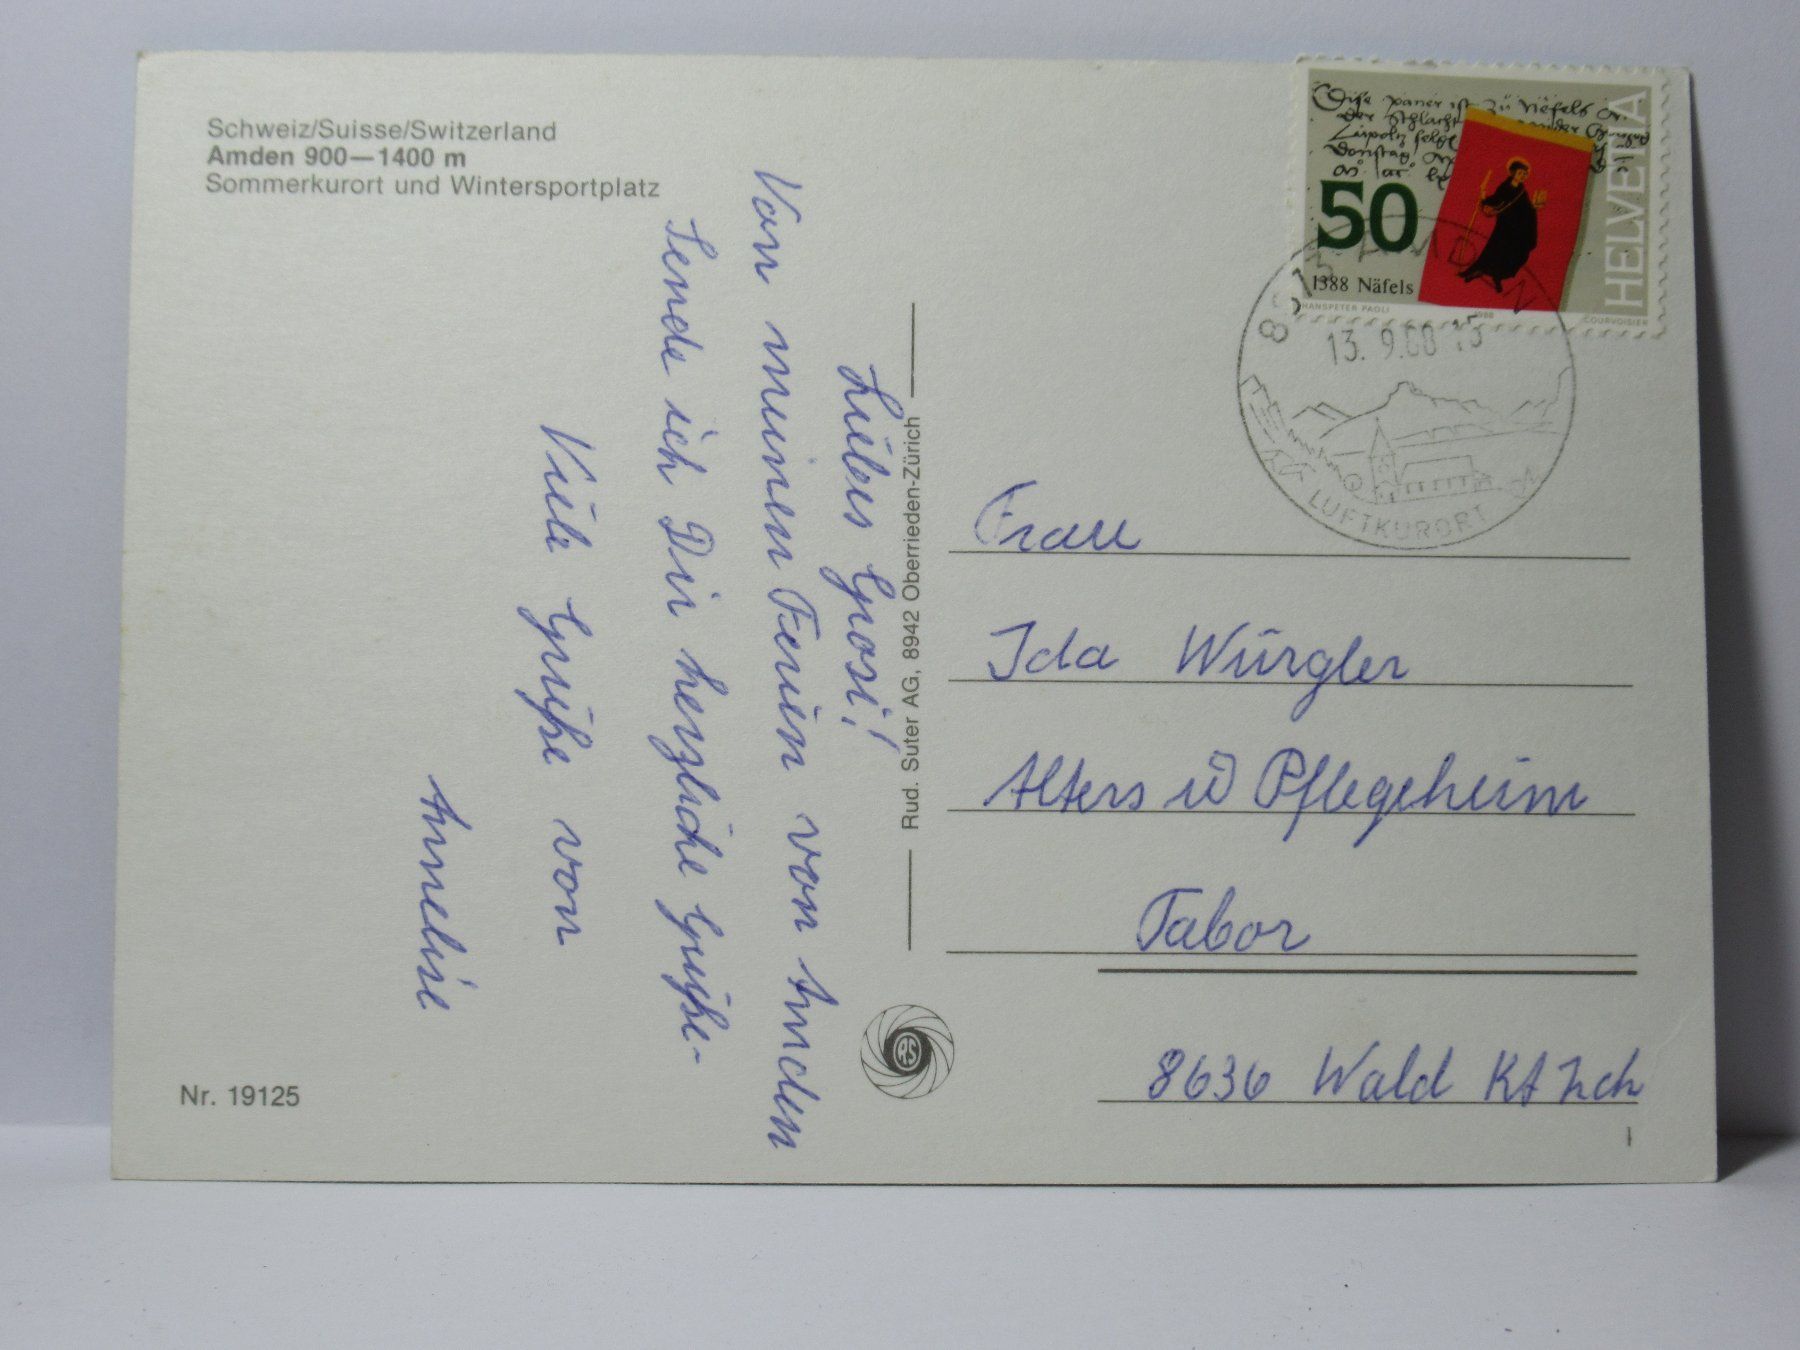 Schweiz/Suisse/Switzerland
Amden 900—1400 m
Sommerkurort und Wintersportplatz
Liebes Grosi!
Von meinen Ferien von Amden
sende ich Dir herzliche Grüße-
Viele Grüße von
Annelise
Nr. 19125
Rud. Suter AG, 8942 Oberrieden-Zürich
RS
Dise paner ist zu Näfels
der schlacht
50
1388 Näfels
HELVETIA
HANSPETER PAOLI
1988
COURVOISIER
AMDEN
13. 9.88
LUFTKURORT
Frau
Ida Würgler
Alters u Pflegeheim
Tabor
8636 Wald Kt Zch